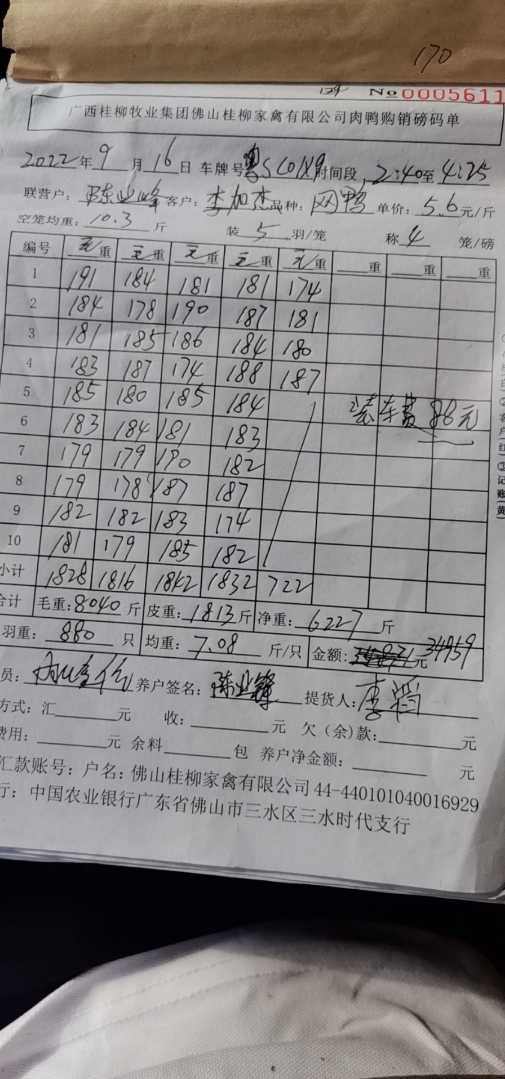 170
No 0005611
广西桂柳牧业集团佛山桂柳家禽有限公司肉鸭购销磅码单
2022年9月16日 车牌号 时间段:2:40至4:25
联营户: 陈业峰 客户: 李加杰 品种: 网鸭 单价: 5.6元/斤
空笼均重: 10.3 斤 装 5 羽/笼 称 4 笼/磅
编号 毛重 毛重 毛重 毛重 毛重 重 重 重
1 191 184 181 181 174
2 184 178 190 187 181
3 181 185 186 184 180
4 183 187 174 188 187
5 185 180 185 184 装车费 88元
6 183 184 181 183
7 179 179 190 182
8 179 178 187 187
9 182 182 183 174
10 181 179 185 182
小计 1828 1816 1842 1832 722
合计 毛重:8040 斤 皮重:1813斤 净重:6227 斤
羽重: 880 只 均重: 7.08 斤/只 金额: 元 34959
员: 养户签名: 陈业峰 提货人: 李
方式: 汇 元 收: 元 欠(余)款: 元
费用: 元 余料 包 养户净金额: 元
汇款账号: 户名: 佛山桂柳家禽有限公司 44-440101040016929
行: 中国农业银行广东省佛山市三水区三水时代支行